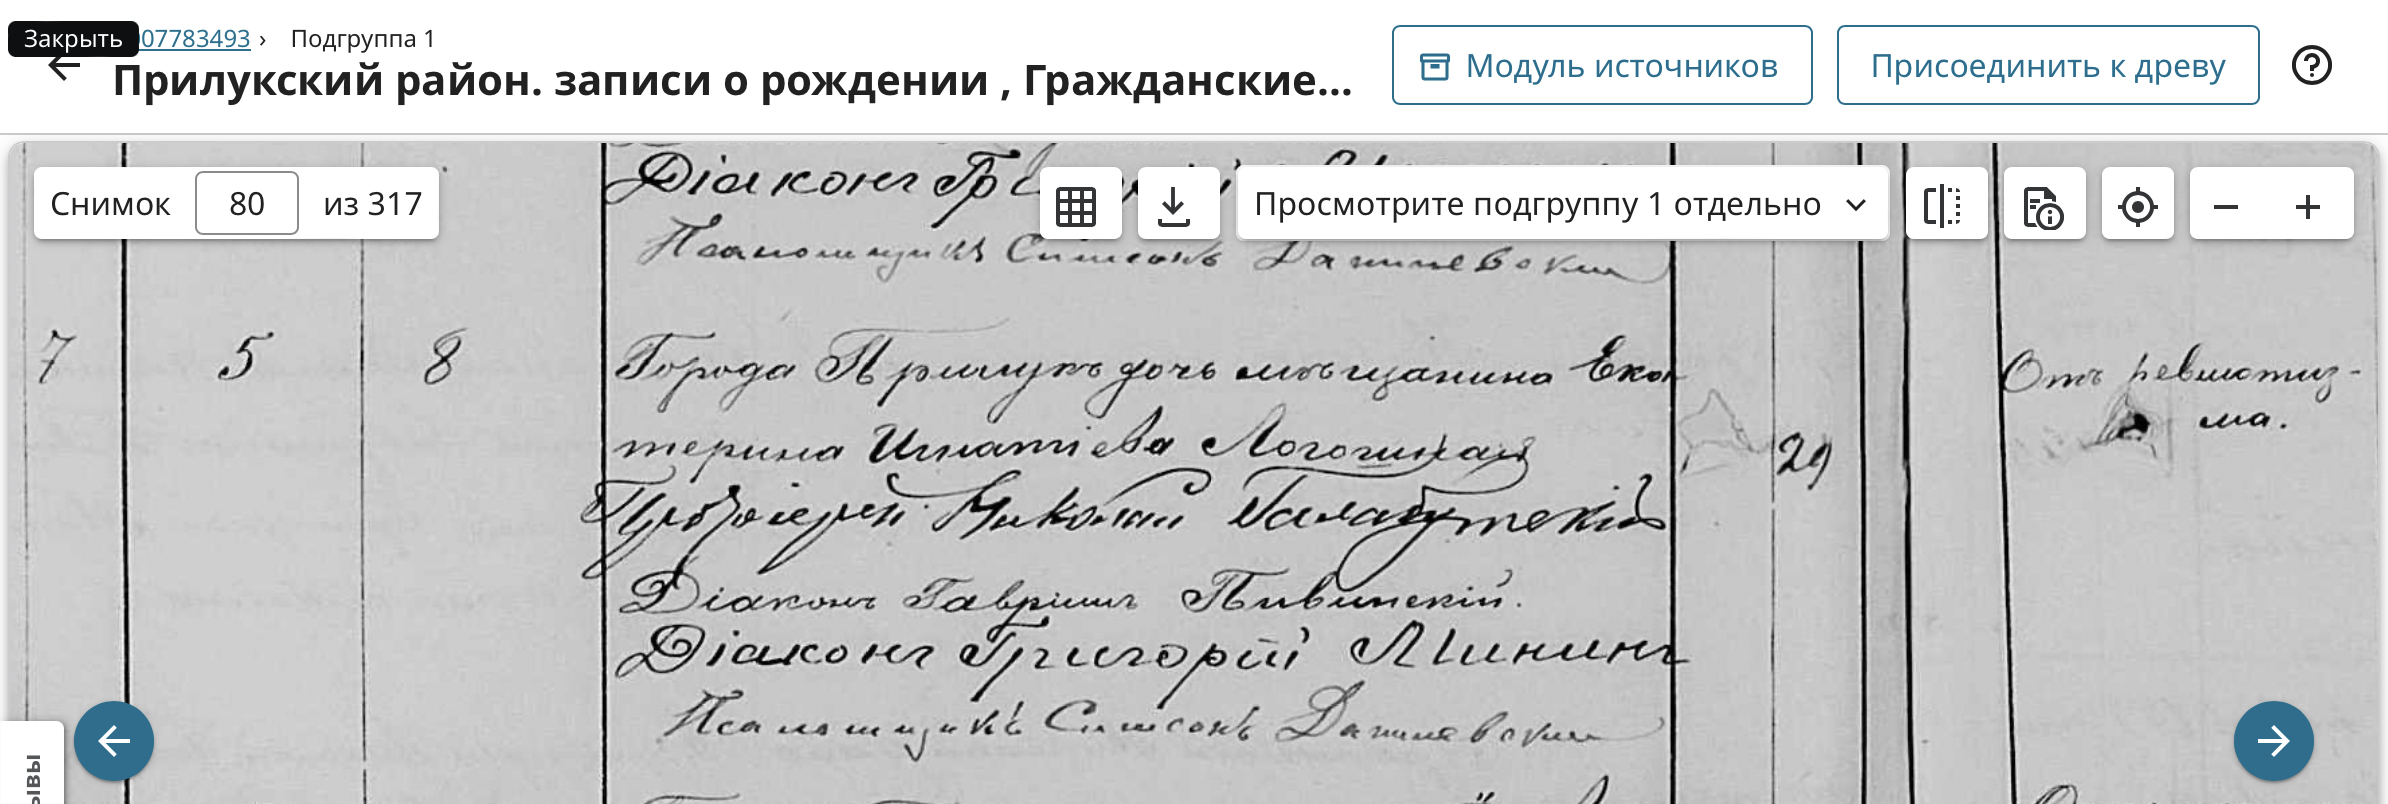 Закрыть 07783493 › Подгруппа 1
Прилукский район. записи о рождении , Гражданские...
Модуль источников
Присоединить к древу
Снимок 80 из 317
Просмотрите подгруппу 1 отдельно
Діаконъ
Псаломщикъ Симеонъ Данилевскій
7 5 8 Города Прилукъ дочь мѣщанина Ека-
терина Игнатіева
29
Отъ ревматиз-
ма.
Николай
Діаконъ Гавріилъ
Діаконъ Григорій Мининъ
Псаломщикъ Симеонъ Данилевскій
ывы